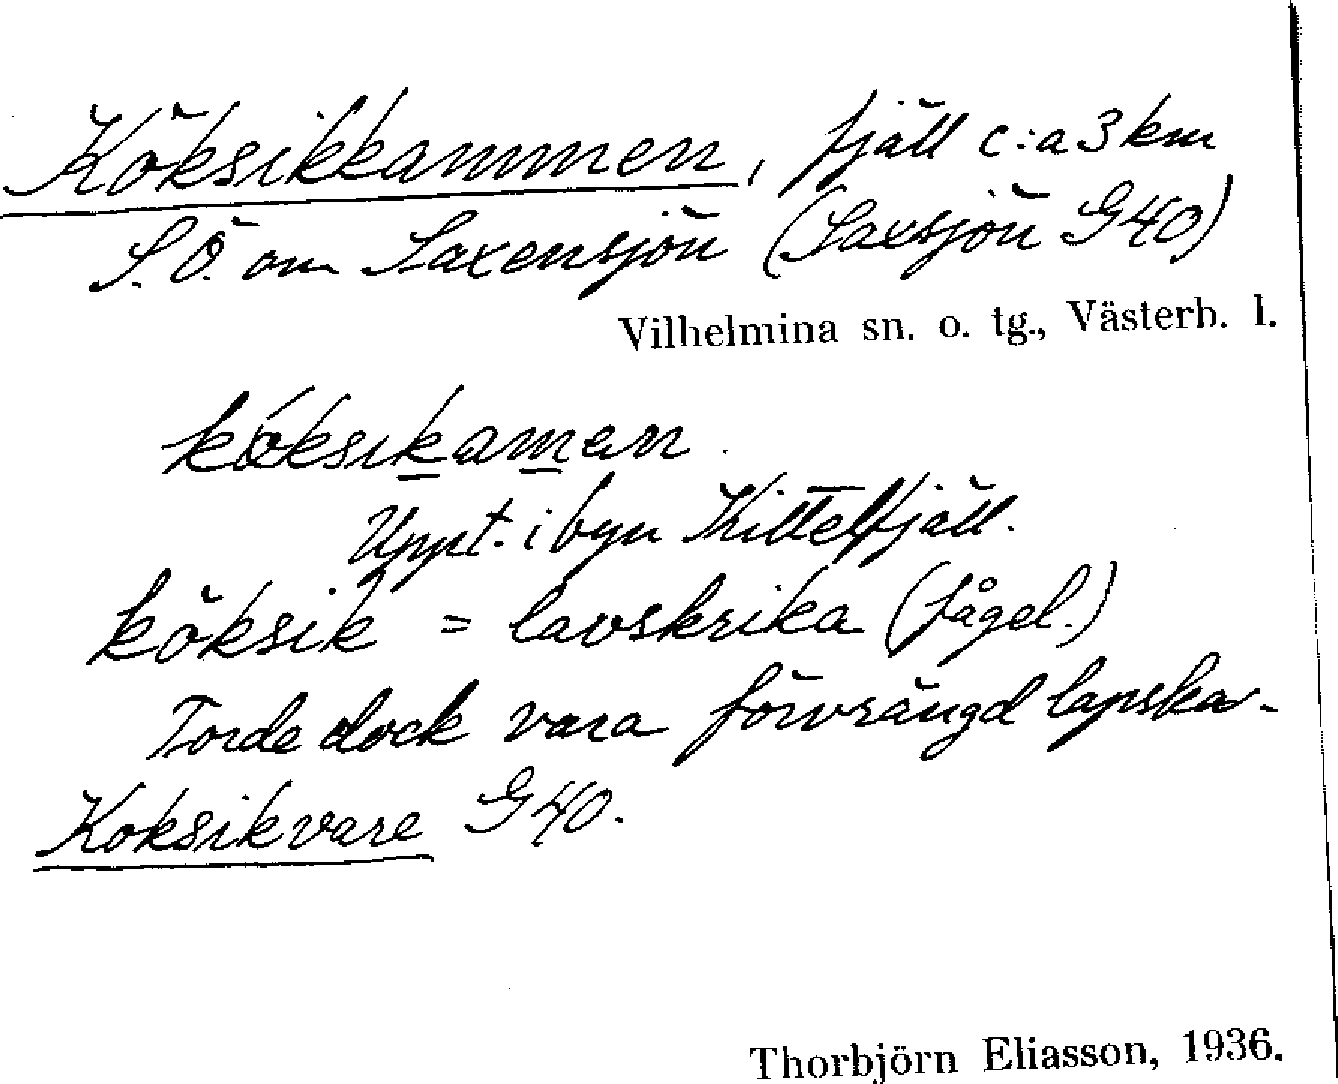 Köksikkammen, fjäll c:a 3 km
S.Ö. om Saxensjön (Saxsjön G40)
Vilhelmina sn. o. tg., Västerb. l.
köksikamen.
Uppt. i byn Kittelfjäll.
köksik = lavskrika (fågel.)
Torde dock vara förvrängd lapska.
Koksikvare G40.
Thorbjörn Eliasson, 1936.